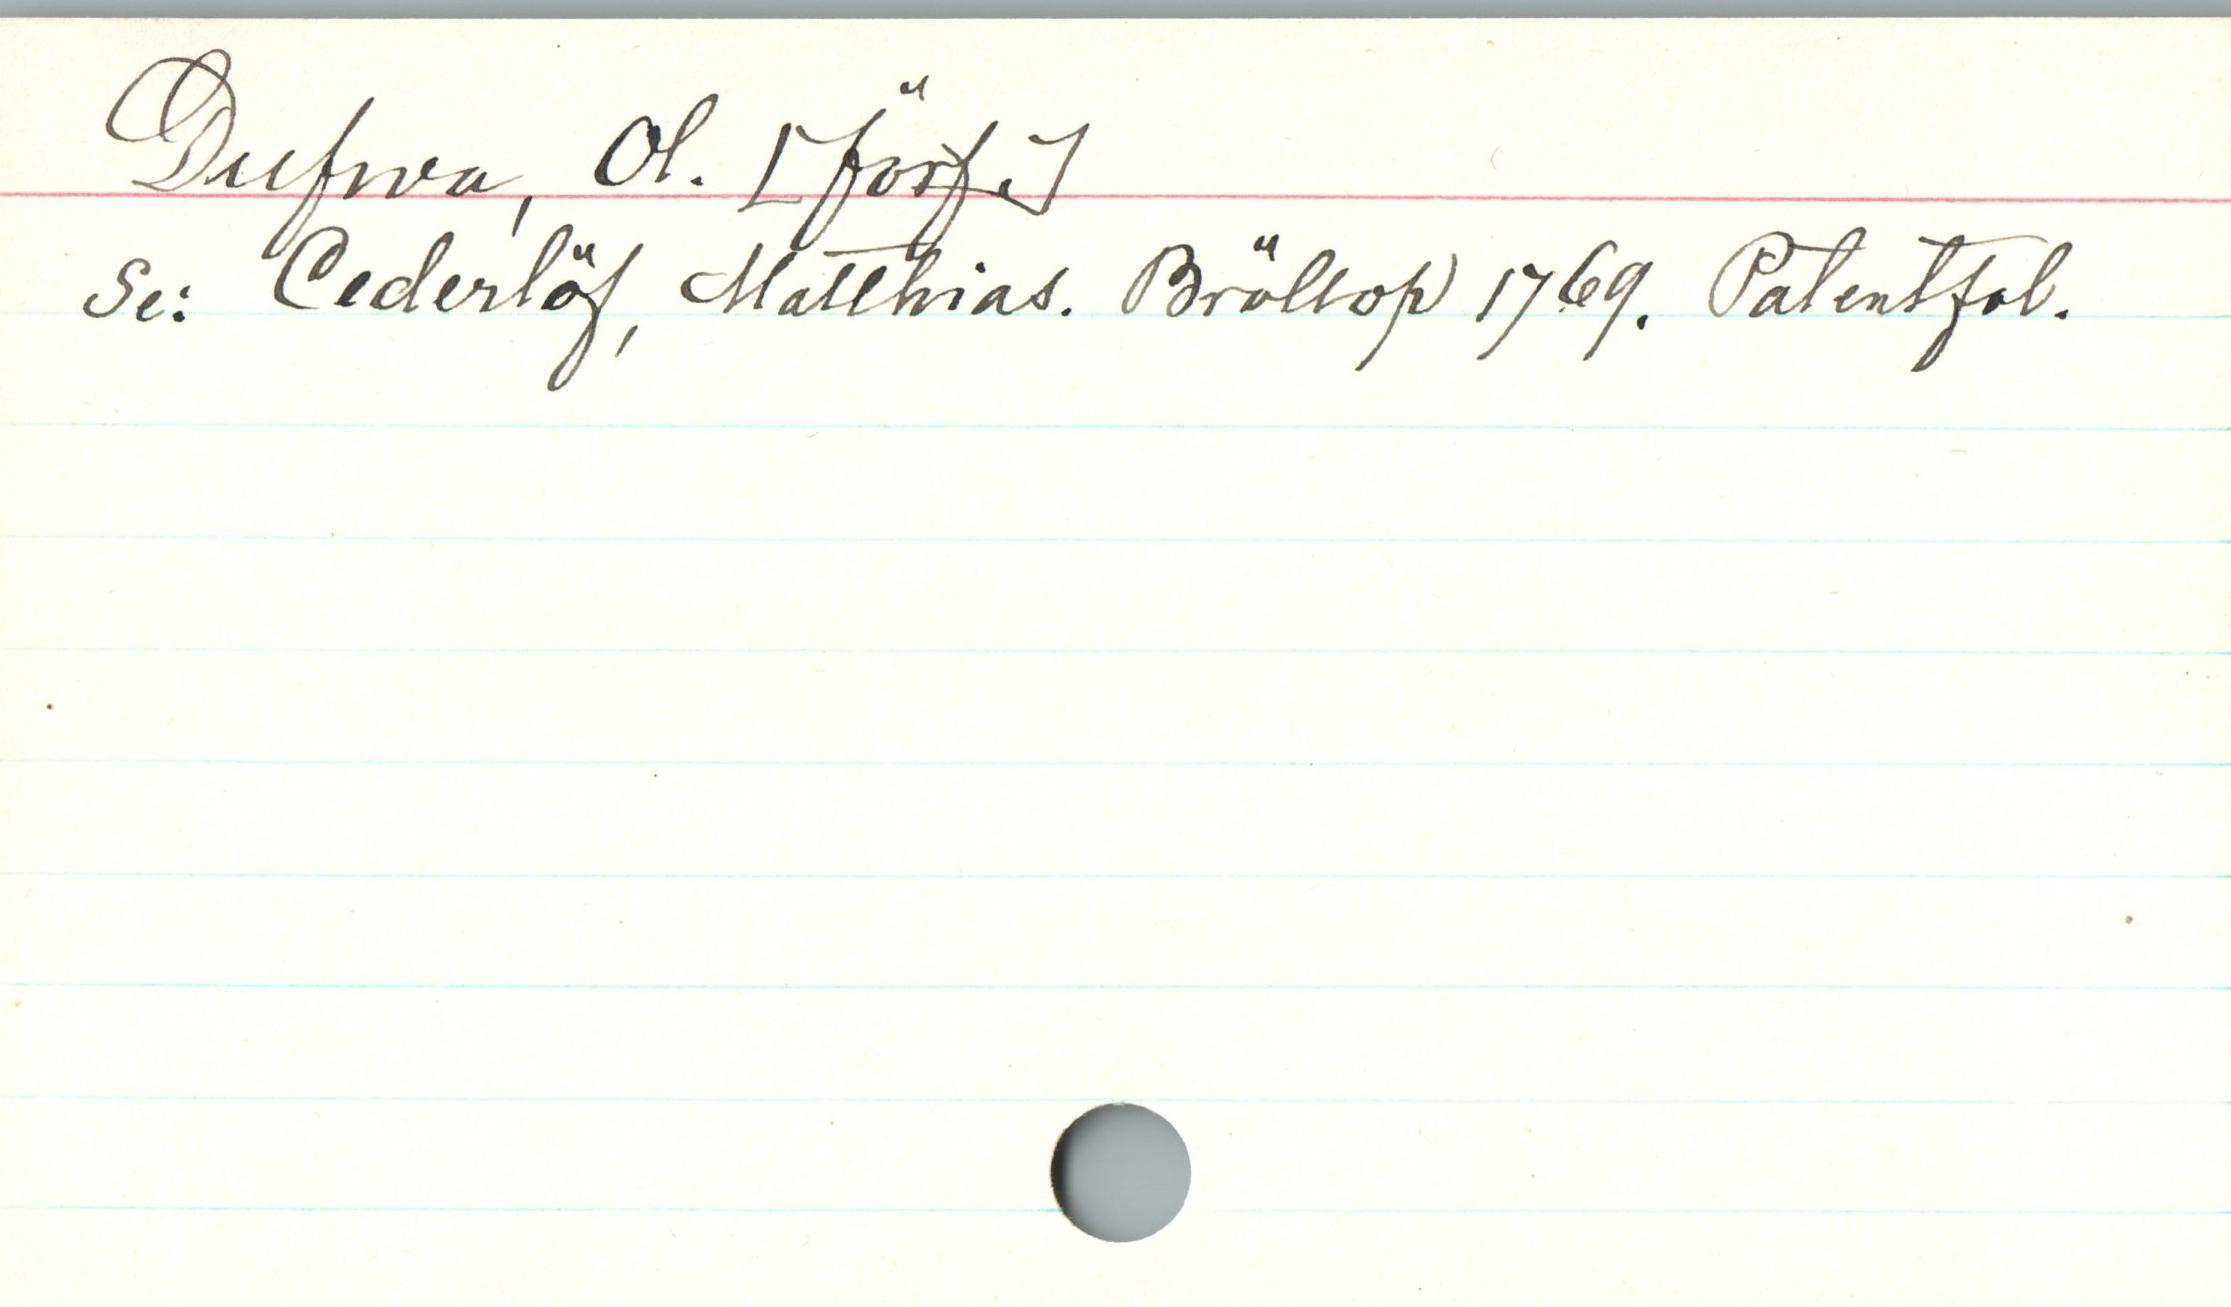 Dufwa, Ol. [förf.]
Se: Cederlöf, Matthias. Bröllop 1769. Patentfol.